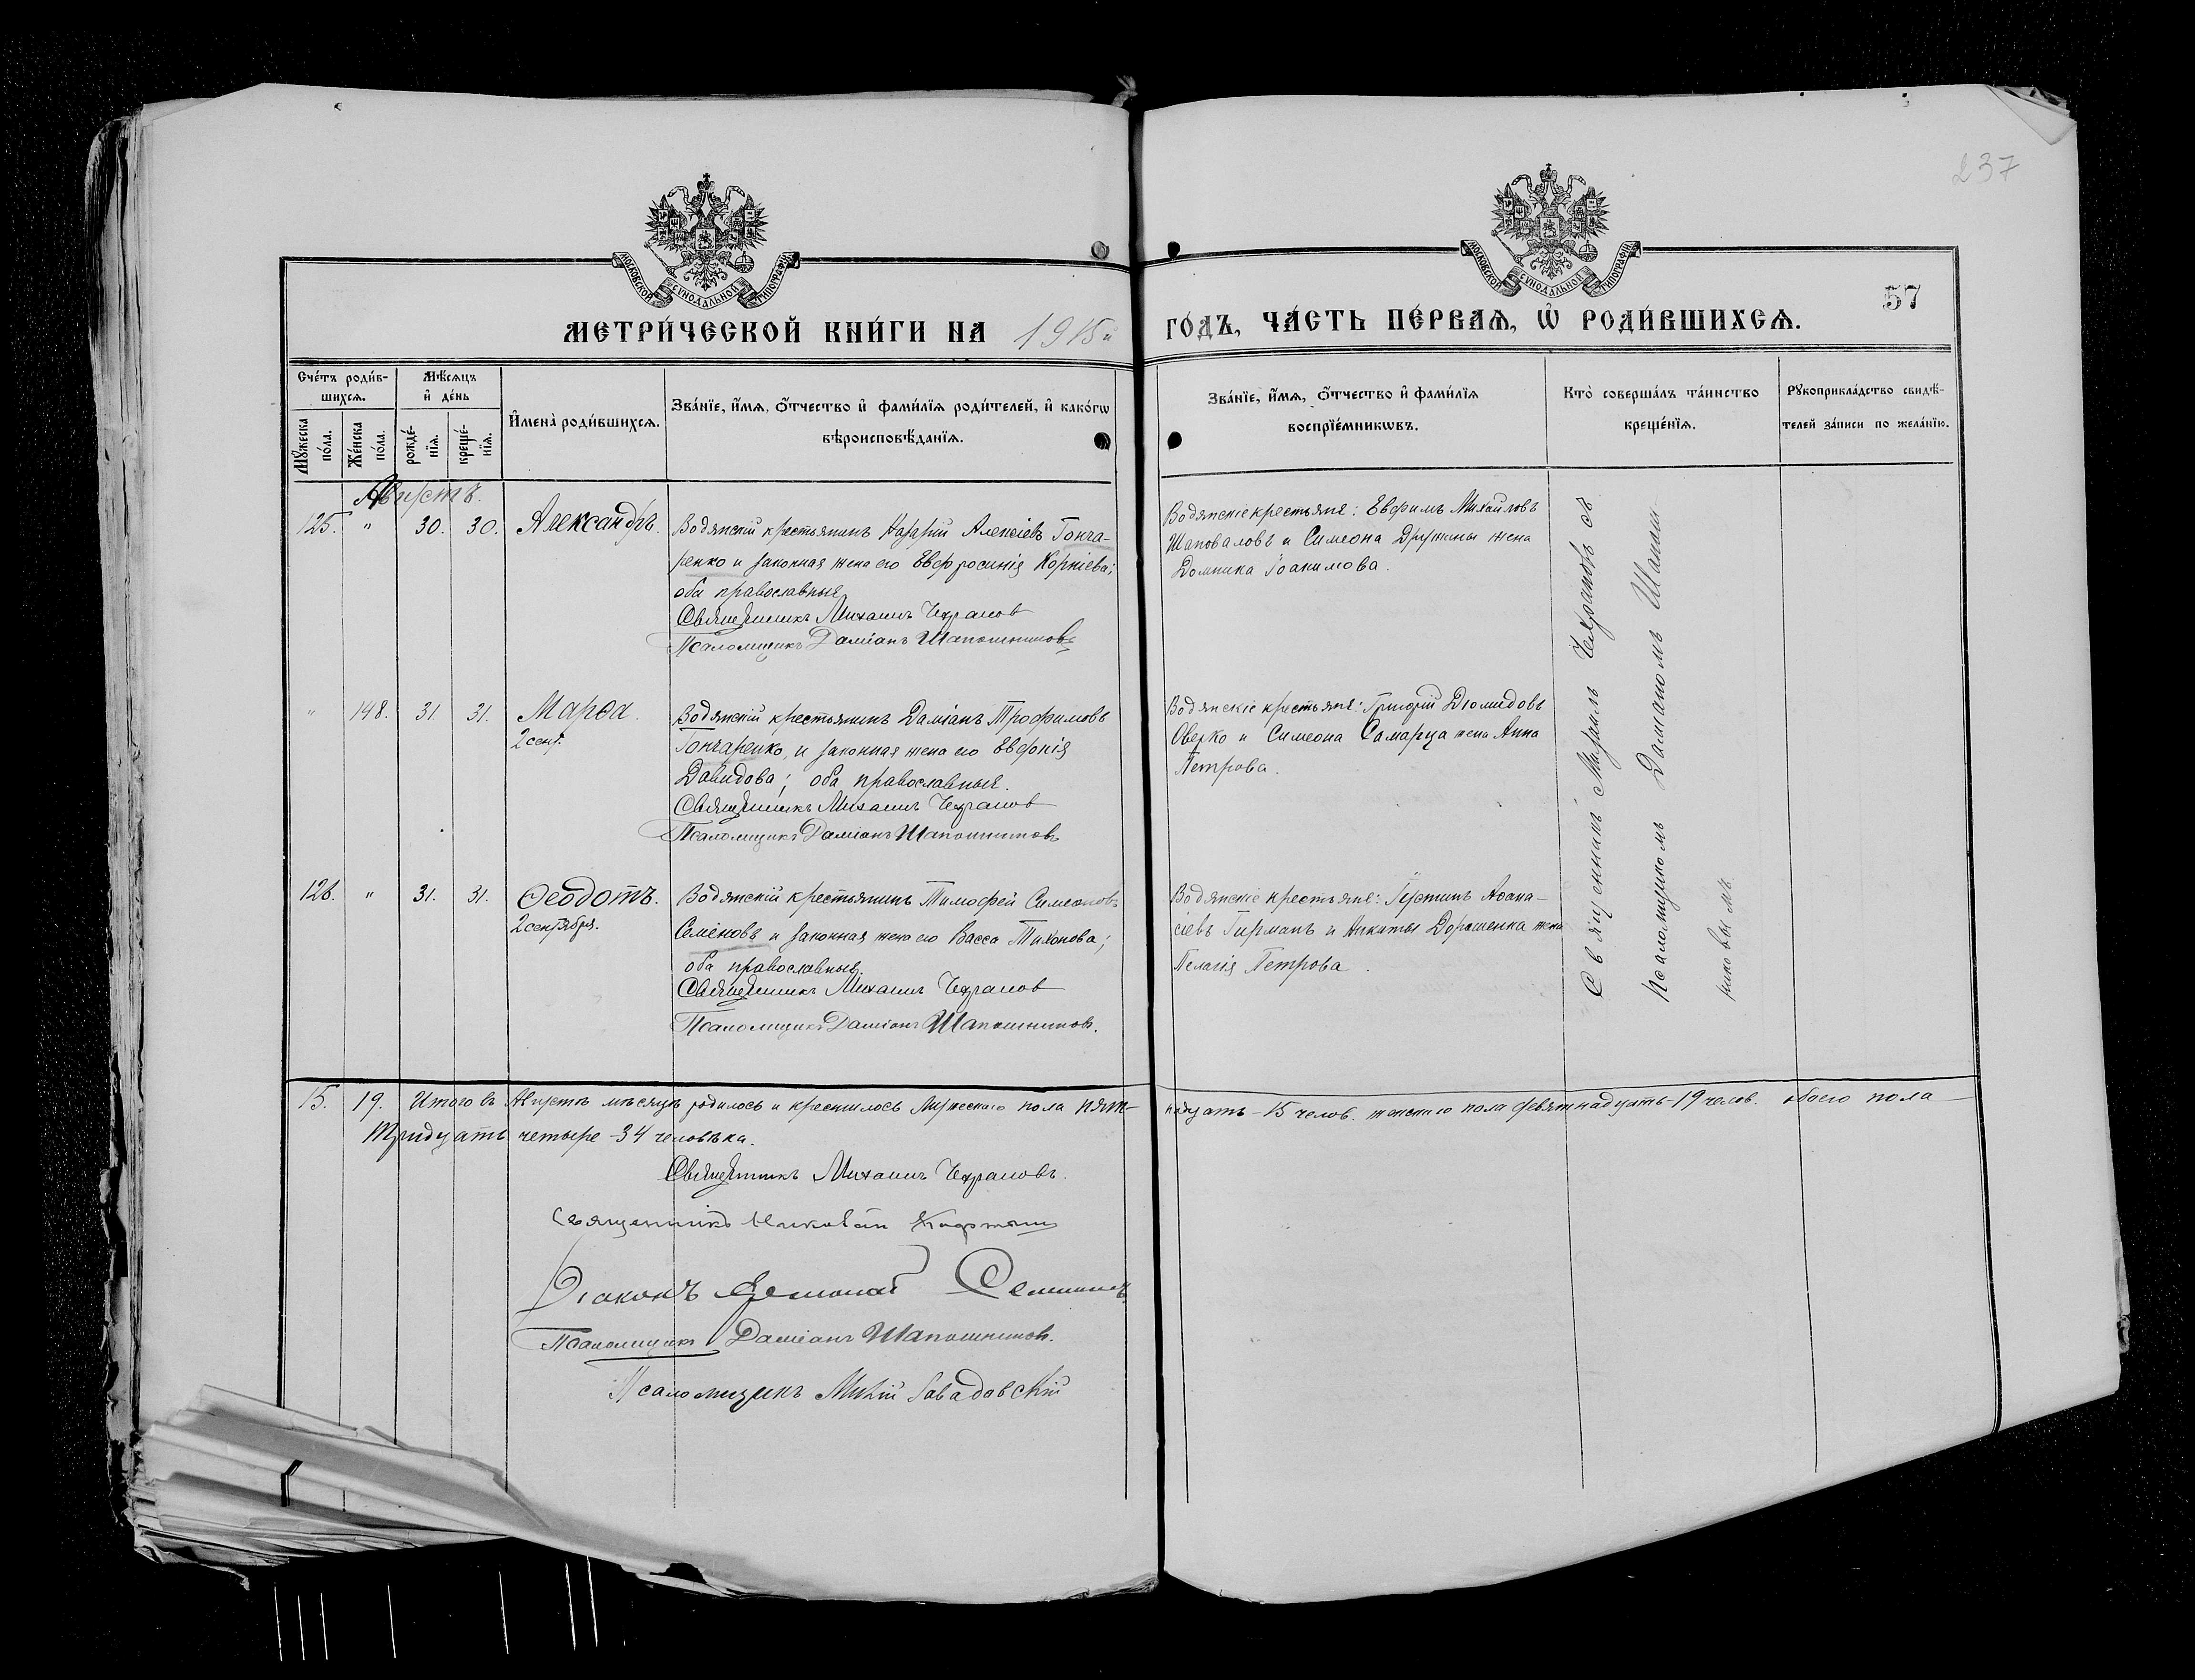 237
57
МОСКОВСКОЙ СУНОДАЛЬНОЙ ТИПОГРАФІИ
МОСКОВСКОЙ СУНОДАЛЬНОЙ ТИПОГРАФІИ
МЕТРИ́ЧЕСКОЙ КНИ́ГИ НА 1915й ГО́ДЪ, ЧА́СТЬ ПЕ́РВАѦ, Ѡ҆ РОДИ́ВШИХСѦ.
Сче́тъ роди́в-
шихсѧ.
Мꙋ́жеска по́ла.
Же́нска по́ла.
Мѣ́сѧцъ
и҆ де́нь
рожде́-
нїѧ.
креще́-
нїѧ.
И҆мена̀ роди́вшихсѧ.
Зва́нїе, и҆́мѧ, ѻ҆́тчество и҆ фами́лїѧ роди́телей, и҆ како́гѡ
вѣроисповѣ́данїѧ.
Зва́нїе, и҆́мѧ, ѻ҆́тчество и҆ фами́лїѧ
воспрїе́мникѡвъ.
Кто̀ соверша́лъ та́инство
креще́нїѧ.
Рꙋкоприкла́дство свидѣ́-
телей за́писи по жела́нїю.
Августъ.
125. " 30. 30. Александръ.
Водянскій крестьянинъ Назарій Алексіевъ Гонча-
ренко и законная жена его Евфросинія Корніева;
оба православные
Священникъ Михаилъ Чехранов
Псаломщикъ Даміанъ Шапошниковъ
Водянскіе крестьяне: Евфимъ Михайловъ
Шаповаловъ и Симеона Дружины жена
Домника Іоакимова.
" 148. 31. 31. Марѳа.
2 сент.
Водянскій крестьянинъ Даміанъ Трофимовъ
Гончаренко, и законная жена его Евфимія
Давидова; оба православные.
Священникъ Михаилъ Чехранов
Псаломщикъ Даміанъ Шапошниковъ
Водянскіе крестьяне: Григорій Діомидовъ
Оверко и Симеона Самарца жена Анна
Петрова.
126. " 31. 31. Ѳеодотъ.
2 сентября.
Водянскій крестьянинъ Тимофей Симеоновъ
Семеновъ и законная жена его Васса Тихонова;
оба православные.
Священникъ Михаилъ Чехранов
Псаломщикъ Даміанъ Шапошниковъ.
Водянскіе крестьяне: Іустинъ Аѳана-
сіевъ Гирманъ и Никиты Дорошенка жена
Пелагія Петрова.
Священникъ Михаилъ Чехрановъ съ
псаломщикомъ Даміаномъ Шапош
никовымъ
15. 19. Итого въ Августѣ мѣсяцѣ родилось и крестилось мужескаго пола пят-
надцать - 15 челов. женскаго пола девятнадцать - 19 челов. обоего пола
тридцать четыре - 34 человѣка.
Священникъ Михаилъ Чехрановъ.
Священникъ Николай
Діаконъ
Псаломщикъ Даміанъ Шапошниковъ.
Псаломщикъ Завадовскій